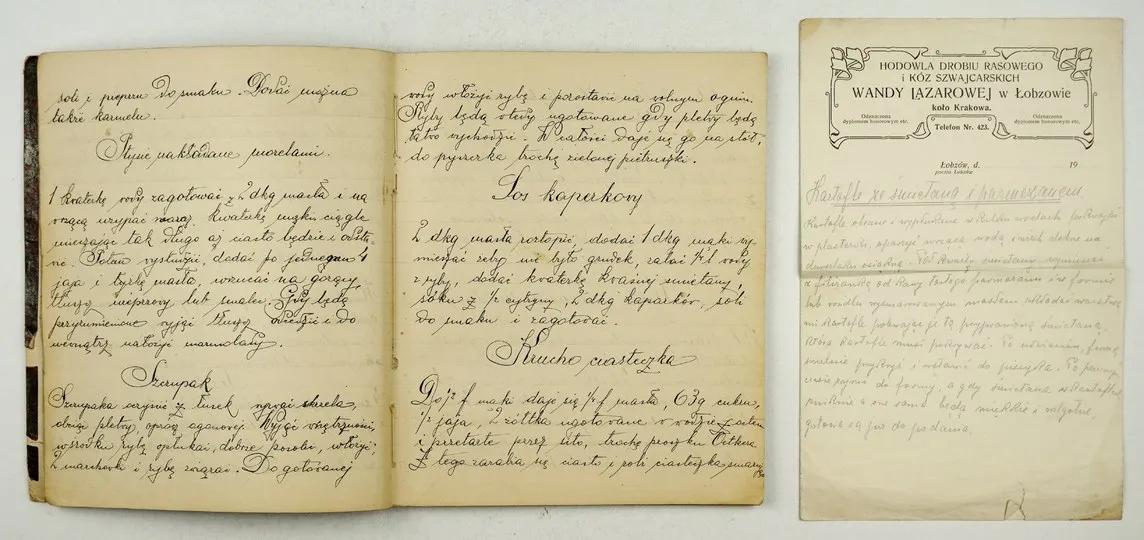 soli i pieprzu do smaku. Dodać można
także karmelu.
Ptysie nakładane morelami.
1 kwaterkę wody zagotować z 2 dkg masła i na
wrzącą wsypać zaraz kwaterkę mąki ciągle
mieszając tak długo aż ciasto będzie odsta-
wić. Potem wystudzić, dodać po jednemu 4
jaja i łyżkę masła, wrzucać na gorący
tłuszcz wieprzowy lub smalec. Gdy będą
przyrumienione wyjąć tłuszcz i do
wewnątrz nałożyć marmolady.
Szczupak
Szczupaka oczyścić z łusek, wyrżnąć skrzela,
oraz pletwy, oprócz ogonowej. Wyjąć wnętrzności,
w środku rybę opłukać, dobrze posolić, włożyć
2 marchewki i rybę związać. Do gotowanej
wody włożyć rybę i pozostawić na wolnym ogniu.
Ryby będą wtedy ugotowane gdy pletwy będą
łatwo wychodzić. W całości daje się go na stół,
do pyszczka trochę zielonej pietruszki.
Sos kaperkowy
2 dkg masła roztopić, dodać 1 dkg mąki wy-
mieszać żeby nie było grudek, zalać 1/4 l wody
z ryby, dodać kwaterkę kwaśnej śmietany,
soku z 1/2 cytryny, 2 dkg kaparków, soli
do smaku i zagotować.
Kruche ciasteczka
Do 1/2 f mąki daje się 1/4 f masła, 63 g cukru,
1/2 jaja, 2 żółtka ugotowane w wodzie
i przetarte przez sito, trochę proszku Oetkera.
Z tego zarabia się ciasto i robi ciasteczka
HODOWLA DROBIU RASOWEGO
i KÓZ SZWAJCARSKICH
WANDY ŁAZAROWEJ w Łobzowie
koło Krakowa.
Odznaczona
dyplomem honorowym etc.
Telefon Nr. 423.
Odznaczona
dyplomem honorowym etc.
Łobzów, d. 19
poczta Łokoko
Kartofle ze śmietaną i parmezanem
Kartofle obrane i wypłukane w kilku wodach pokrajać
w plasterki, sparzyć wrzącą wodą i niech dobrze na
durszlaku osiąkną. Pół kwarty śmietany wymieszać
z filiżanką od kawy tartego parmezanu i w formie
lub rondlu wysmarowanym masłem układać warstwa-
mi kartofle polewając je tą przyprawioną śmietaną,
która kartofle musi pokrywać. Po nakryciu formę
szczelnie przykryć i wstawić do pieczyka. Po
do formy, a gdy śmietana w kartoflach
zniknie a one same będą miękkie i wilgotne,
gotowe są już do podania.